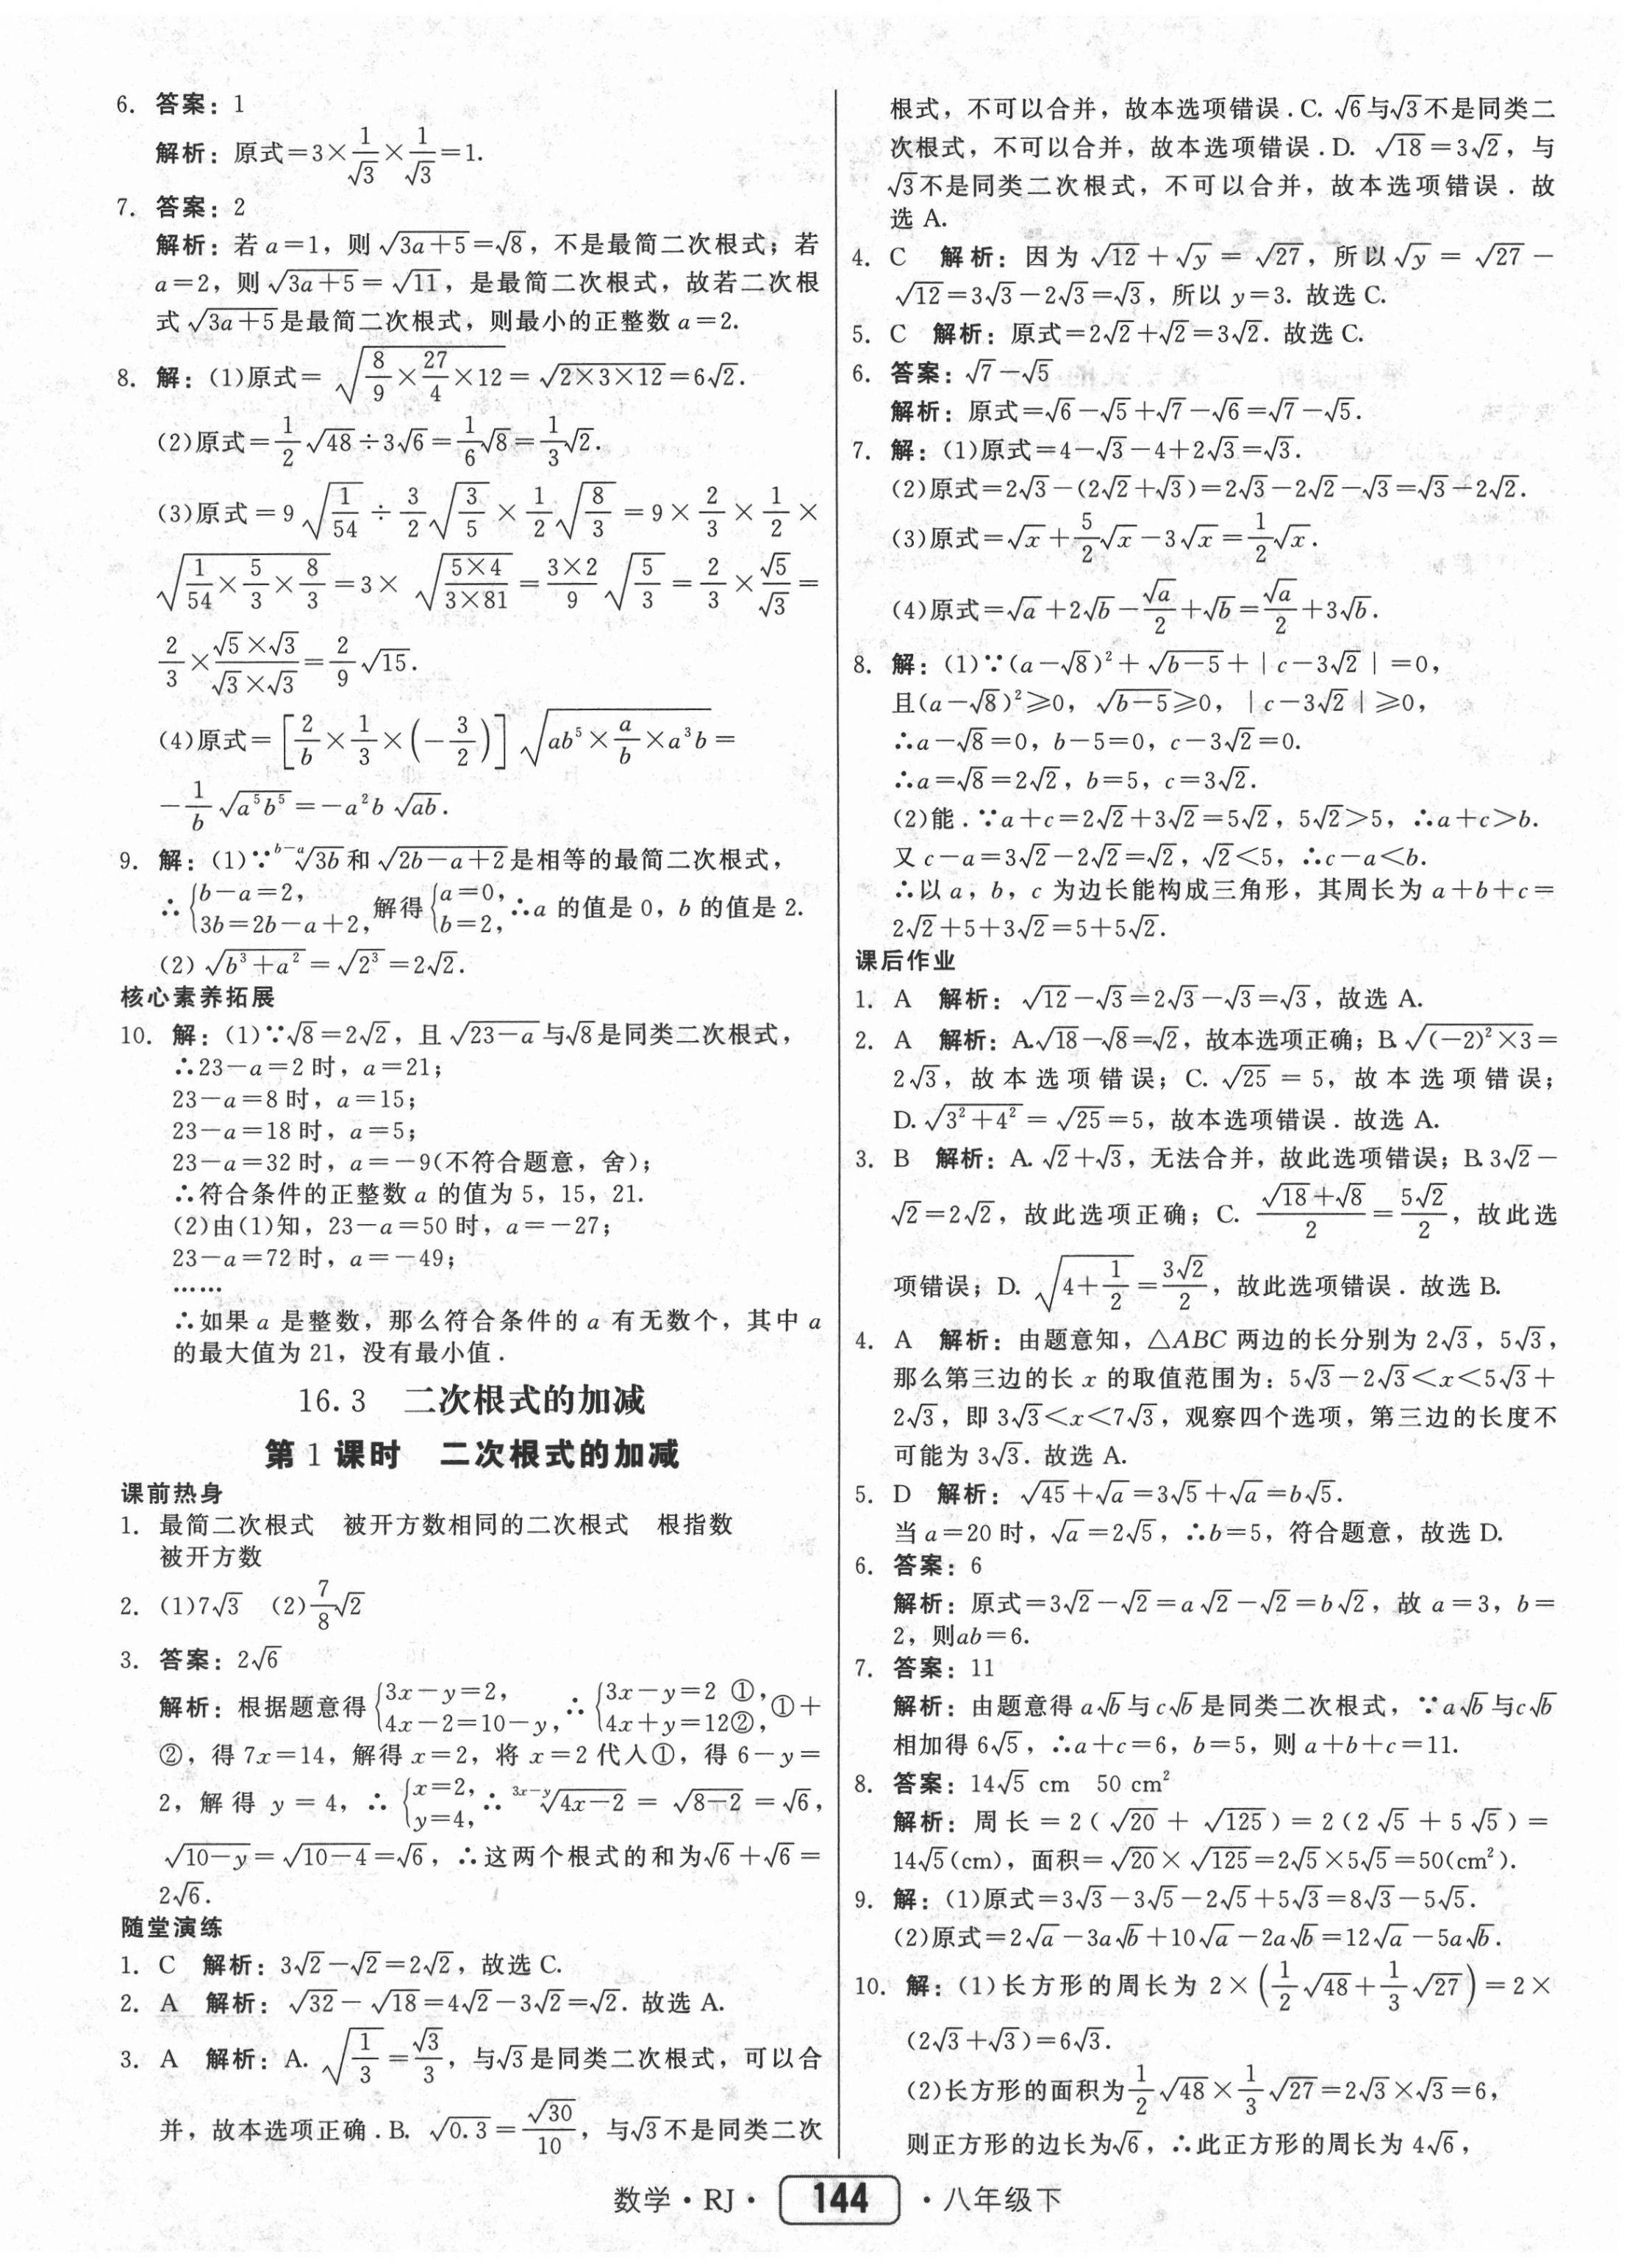 6. 答案：1
解析：原式=3×1/√3×1/√3=1.
7. 答案：2
解析：若 a=1，则 √(3a+5)=√8，不是最简二次根式；若
a=2，则 √(3a+5)=√11，是最简二次根式，故若二次根
式 √(3a+5)是最简二次根式，则最小的正整数 a=2.
8. 解：(1)原式=√(8/9×27/4×12)=√(2×3×12)=6√2.
(2)原式=1/2√48÷3√6=1/6√8=1/3√2.
(3)原式=9√(1/54)÷3/2√(3/5)×1/2√(8/3)=9×2/3×1/2×
√(1/54×5/3×8/3)=3×√((5×4)/(3×81))=(3×2)/9√(5/3)=2/3×√5/√3=
2/3×(√5×√3)/(√3×√3)=2/9√15.
(4)原式=[2/b×1/3×(-3/2)]√(ab⁵×a/b×a³b)=
-1/b√(a⁵b⁵)=-a²b√(ab).
9. 解：(1)∵ᵇ⁻ᵃ√(3b)和√(2b-a+2)是相等的最简二次根式，
∴{b-a=2，3b=2b-a+2，解得{a=0，b=2，∴a 的值是 0，b 的值是 2.
(2)√(b³+a²)=√(2³)=2√2.
核心素养拓展
10. 解：(1)∵√8=2√2，且√(23-a)与√8是同类二次根式，
∴23-a=2 时，a=21；
23-a=8 时，a=15；
23-a=18 时，a=5；
23-a=32 时，a=-9(不符合题意，舍)；
∴符合条件的正整数 a 的值为 5，15，21.
(2)由(1)知，23-a=50 时，a=-27；
23-a=72 时，a=-49；
……
∴如果 a 是整数，那么符合条件的 a 有无数个，其中 a
的最大值为 21，没有最小值.
16.3 二次根式的加减
第 1 课时 二次根式的加减
课前热身
1. 最简二次根式 被开方数相同的二次根式 根指数
被开方数
2. (1)7√3 (2)7/8√2
3. 答案：2√6
解析：根据题意得{3x-y=2，4x-2=10-y，∴{3x-y=2 ①，4x+y=12②，①+
②，得 7x=14，解得 x=2，将 x=2 代人①，得 6-y=
2，解得 y=4，∴{x=2，y=4，∴³ˣ⁻ʸ√(4x-2)=√(8-2)=√6，
√(10-y)=√(10-4)=√6，∴这两个根式的和为√6+√6=
2√6.
随堂演练
1. C 解析：3√2-√2=2√2，故选 C.
2. A 解析：√32-√18=4√2-3√2=√2. 故选 A.
3. A 解析：A. √(1/3)=√3/3，与√3是同类二次根式，可以合
并，故本选项正确.B. √0.3=√30/10，与√3不是同类二次
根式，不可以合并，故本选项错误.C. √6与√3不是同类二
次根式，不可以合并，故本选项错误.D. √18=3√2，与
√3不是同类二次根式，不可以合并，故本选项错误. 故
选 A.
4. C 解析：因为√12+√y=√27，所以√y=√27-
√12=3√3-2√3=√3，所以 y=3. 故选 C.
5. C 解析：原式=2√2+√2=3√2. 故选 C.
6. 答案：√7-√5
解析：原式=√6-√5+√7-√6=√7-√5.
7. 解：(1)原式=4-√3-4+2√3=√3.
(2)原式=2√3-(2√2+√3)=2√3-2√2-√3=√3-2√2.
(3)原式=√x+5/2√x-3√x=1/2√x.
(4)原式=√a+2√b-√a/2+√b=√a/2+3√b.
8. 解：(1)∵(a-√8)²+√(b-5)+|c-3√2|=0，
且(a-√8)²≥0，√(b-5)≥0，|c-3√2|≥0，
∴a-√8=0，b-5=0，c-3√2=0.
∴a=√8=2√2，b=5，c=3√2.
(2)能.∵a+c=2√2+3√2=5√2，5√2>5，∴a+c>b.
又 c-a=3√2-2√2=√2，√2<5，∴c-a<b.
∴以 a，b，c 为边长能构成三角形，其周长为 a+b+c=
2√2+5+3√2=5+5√2.
课后作业
1. A 解析：√12-√3=2√3-√3=√3，故选 A.
2. A 解析：A.√18-√8=√2，故本选项正确；B.√((-2)²×3)=
2√3，故本选项错误；C. √25=5，故本选项错误；
D.√(3²+4²)=√25=5，故本选项错误. 故选 A.
3. B 解析：A. √2+√3，无法合并，故此选项错误；B.3√2-
√2=2√2，故此选项正确；C. (√18+√8)/2=5√2/2，故此选
项错误；D. √(4+1/2)=3√2/2，故此选项错误. 故选 B.
4. A 解析：由题意知，△ABC 两边的长分别为 2√3，5√3，
那么第三边的长 x 的取值范围为：5√3-2√3<x<5√3+
2√3，即 3√3<x<7√3，观察四个选项，第三边的长度不
可能为 3√3. 故选 A.
5. D 解析：√45+√a=3√5+√a=b√5.
当 a=20 时，√a=2√5，∴b=5，符合题意，故选 D.
6. 答案：6
解析：原式=3√2-√2=a√2-√2=b√2，故 a=3，b=
2，则ab=6.
7. 答案：11
解析：由题意得 a√b与 c√b是同类二次根式，∵a√b与c√b
相加得 6√5，∴a+c=6，b=5，则 a+b+c=11.
8. 答案：14√5 cm 50 cm²
解析：周长=2(√20+√125)=2(2√5+5√5)=
14√5(cm)，面积=√20×√125=2√5×5√5=50(cm²).
9. 解：(1)原式=3√3-3√5-2√5+5√3=8√3-5√5.
(2)原式=2√a-3a√b+10√a-2a√b=12√a-5a√b.
10. 解：(1)长方形的周长为 2×(1/2√48+1/3√27)=2×
(2√3+√3)=6√3.
(2)长方形的面积为1/2√48×1/3√27=2√3×√3=6，
则正方形的边长为√6，∴此正方形的周长为 4√6，
数学·RJ· 144 ·八年级下